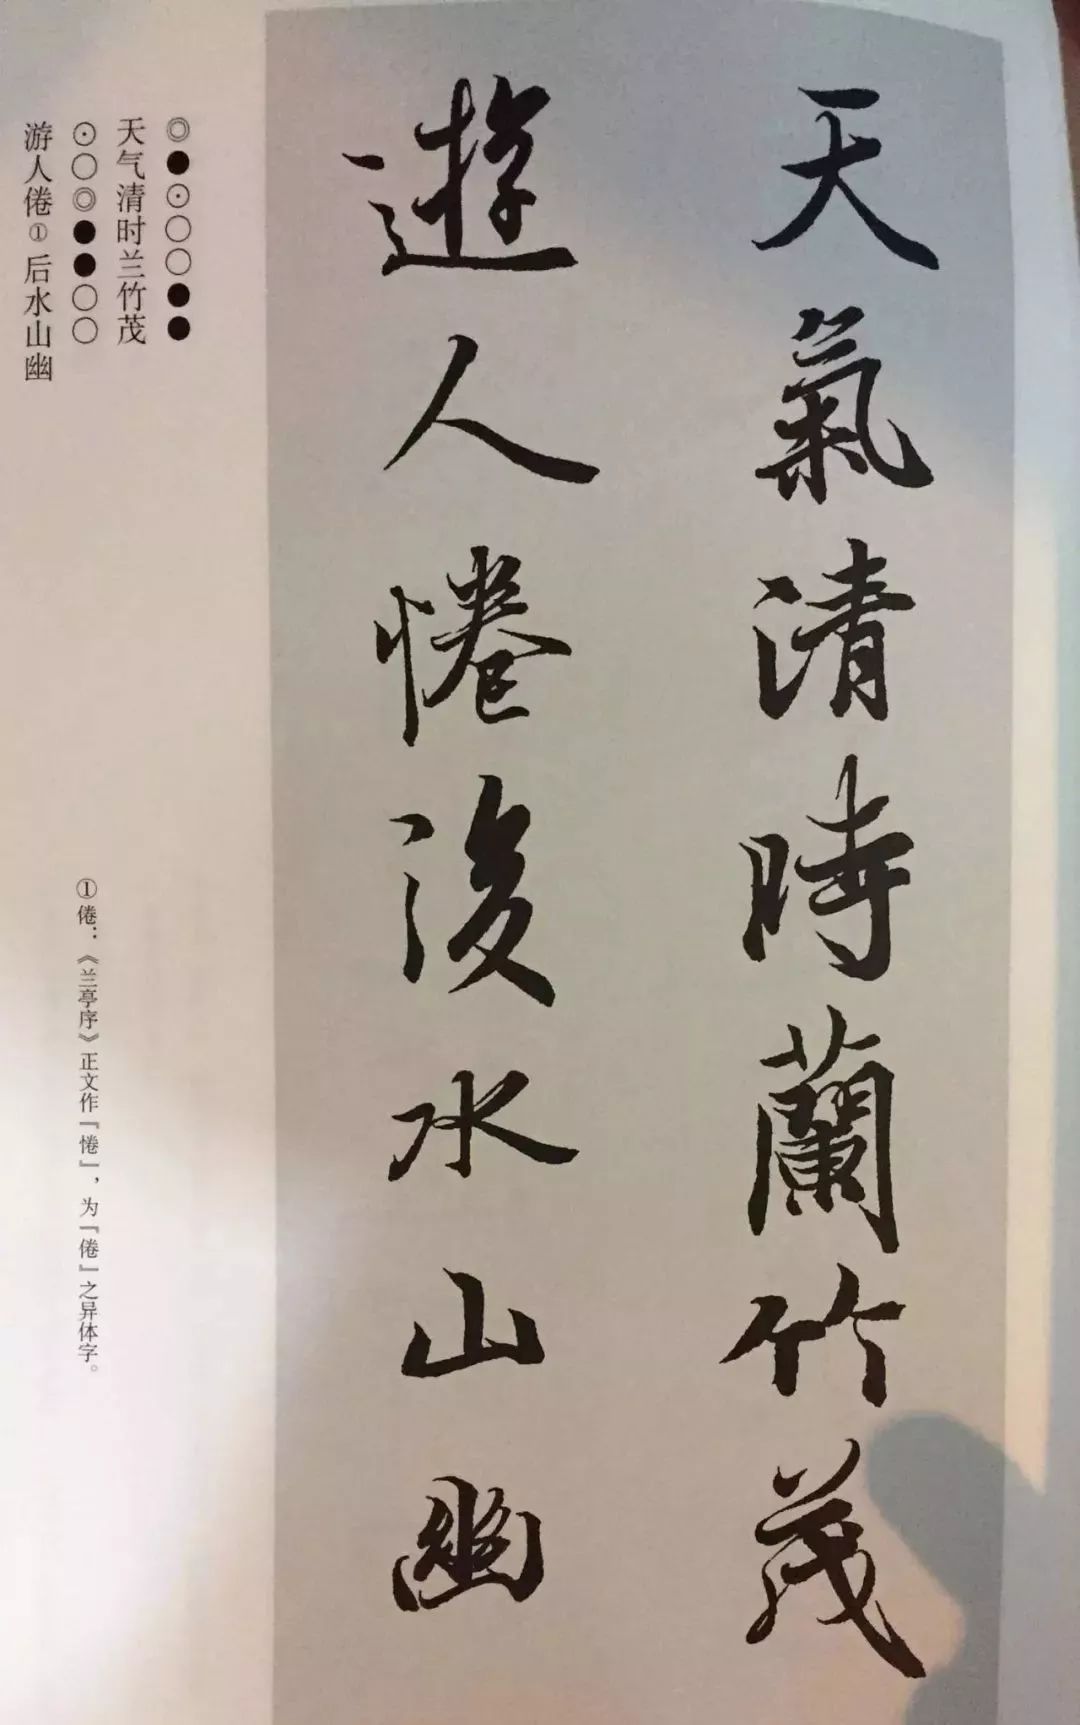 天氣清時蘭竹茂
遊人惓後水山幽
◎●⊙○○●●
天气清时兰竹茂
⊙○◎●●○○
游人倦①后水山幽
①倦：《兰亭序》正文作「惓」，为「倦」之异体字。